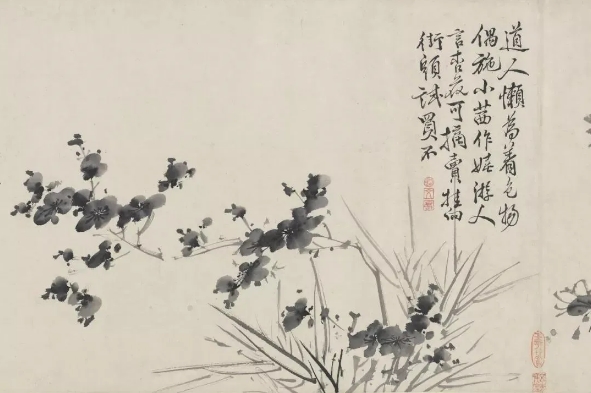 道人懶爲着色物
偶施小茜作嬉游人
言杏花可摘賣挂向
街頭試買不